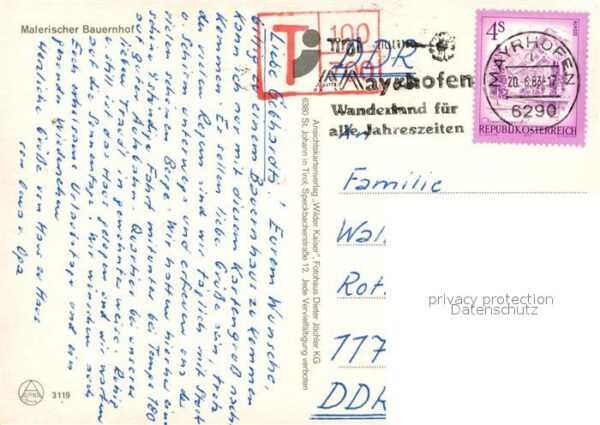 Malerischer Bauernhof
Liebe Gebhardts! Eurem Wunsche,
aus einem Bauernhaus zu kommen
kann hier mit diesem Kartengruß nach
kommen. Es sollen liebe Grüße sein, trotz
des vielen Regens sind wir täglich mit Stock
u. Schirm unterwegs und erfreuen uns der
schönen Berge. Wir hatten hierher eine
schöne Fahrt mitunter bei Tempo 180
lieben Autobahn. Quartier bei unserer
in gewohnter Weise: Ruhig
u. mit Haus gelegen und wir warten
auf Sonnentage! Wir wünschen auch
Euch erholsame Urlaubstage und ein
Wiedersehen
Herzliche Grüße von Haus zu Haus
von Oma u. Opa
3119
Ansichtskartenverlag „Wilder Kaiser", Fotohaus Dieter Jöchler KG
6380 St. Johann in Tirol, Speckbacherstraße 12. Jede Vervielfältigung verboten
T
100
Tirol
Mayrhofen
Wanderland für
alle Jahreszeiten
MAYRHOFEN
20.-6.83-17
6290
4S
REPUBLIK ÖSTERREICH
DDR
An
Familie
Wal
Rot
117
DDR
privacy protection
Datenschutz